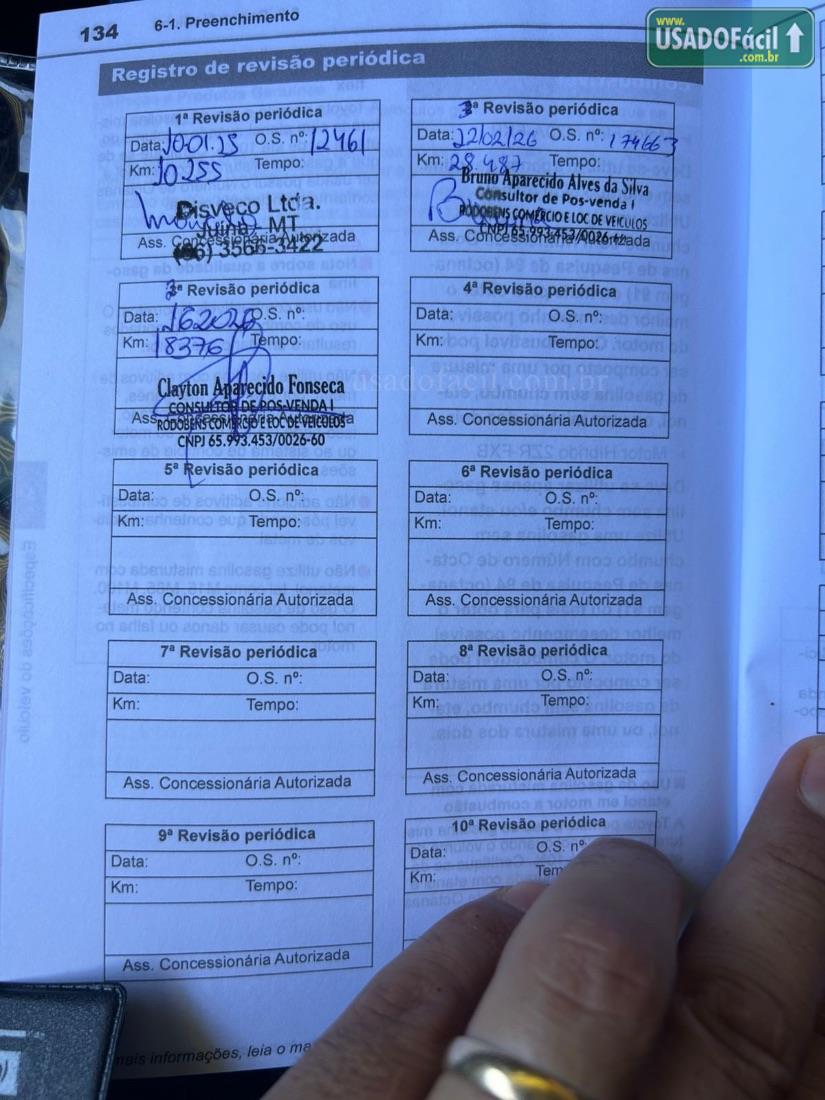 134 6-1. Preenchimento
www.
USADOFácil
.com.br
Registro de revisão periódica
1ª Revisão periódica
Data: 10.01.25 O.S. nº: 12461
Km: 10.255 Tempo:
Disveco Ltda.
Juina - MT
(66) 3566-3422
Ass. Concessionária Autorizada
3ª Revisão periódica
Data: 22/02/26 O.S. nº: 174663
Km: 28.487 Tempo:
Bruno Aparecido Alves da Silva
Consultor de Pos-venda I
RODOBENS COMERCIO E LOC DE VEICULOS
CNPJ 65.993.453/0026-60
Ass. Concessionária Autorizada
ª Revisão periódica
Data: O.S. nº:
Km: 18376 Tempo:
Clayton Aparecido Fonseca
CONSULTOR DE POS-VENDA I
Ass. Concessionária Autorizada
RODOBENS COMERCIO E LOC DE VEICULOS
CNPJ 65.993.453/0026-60
4ª Revisão periódica
Data: O.S. nº:
Km: Tempo:
usadofacil.com.br
Ass. Concessionária Autorizada
5ª Revisão periódica
Data: O.S. nº:
Km: Tempo:
Ass. Concessionária Autorizada
6ª Revisão periódica
Data: O.S. nº:
Km: Tempo:
Ass. Concessionária Autorizada
7ª Revisão periódica
Data: O.S. nº:
Km: Tempo:
Ass. Concessionária Autorizada
8ª Revisão periódica
Data: O.S. nº:
Km: Tempo:
Ass. Concessionária Autorizada
9ª Revisão periódica
Data: O.S. nº:
Km: Tempo:
Ass. Concessionária Autorizada
10ª Revisão periódica
Data: O.S. nº
Km: Tem
mais informações, leia o ma